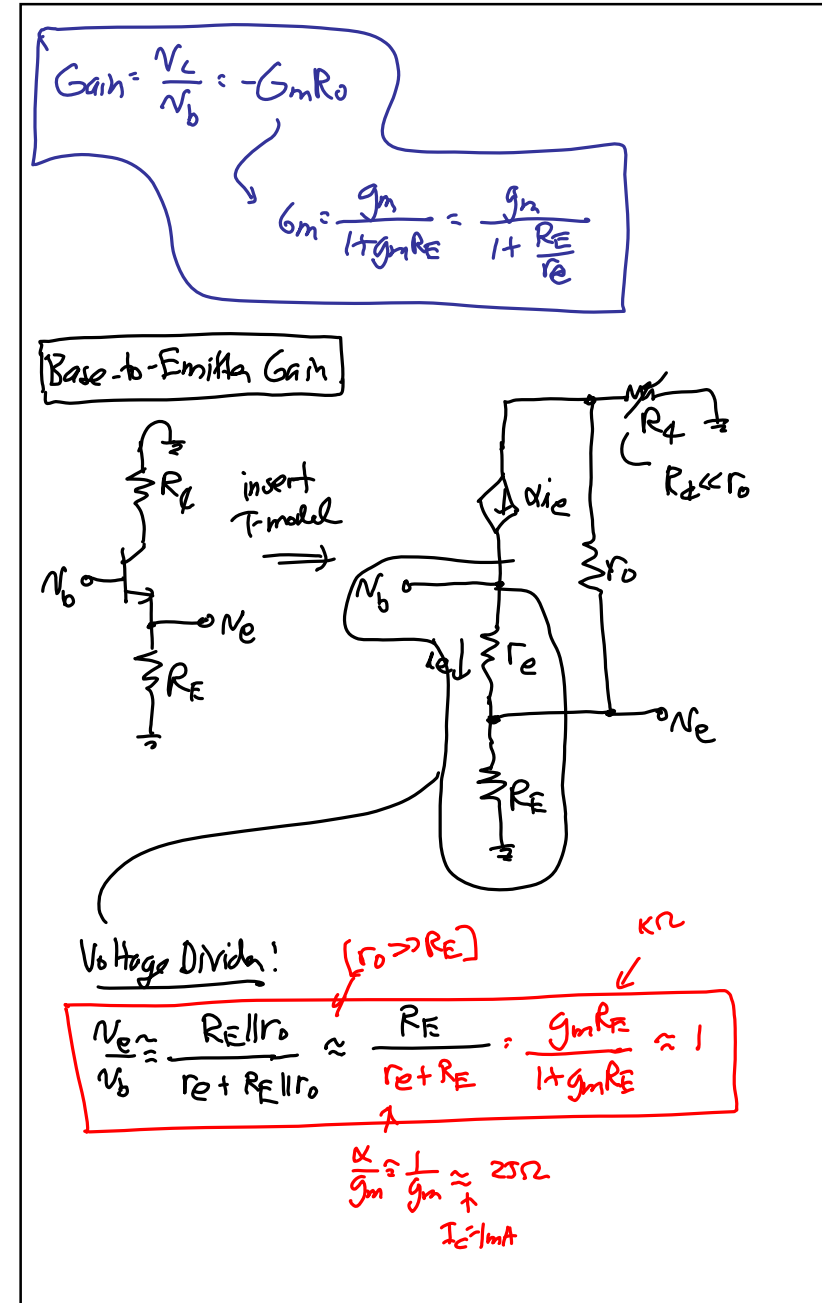 Gain = vc/vb = -GmRo
Gm = gm/(1+gmRE) = gm/(1+RE/re)
Base-to-Emitter Gain
RC
insert
T-model
⇒
vb
ve
RE
αie
RC
RC≪ro
ro
vb
ie↓
re
ve
RE
Voltage Divider!
[ro>>RE]
KΩ
ve/vb ≈ RE||ro/(re+RE||ro) ≈ RE/(re+RE) = gmRE/(1+gmRE) ≈ 1
α/gm ≈ 1/gm ≈ 25Ω
↑
Ic=1mA